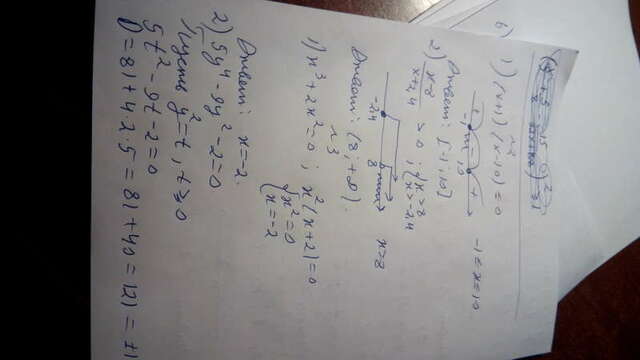 б)
№2
1) (x+1)(x-10) ≤ 0
-1 10
-1≤x≤10
Ответ: [-1;10]
2) x-8 / x+2,4 > 0 ; { x>8 x>-2,4
-2,4 8 x>8
Ответ: (8;+∞).
№3
1) x³+2x²=0 ; x²(x+2)=0
{ x²=0
x=-2
Ответ: x=-2.
2) 5y⁴-9y²-2=0
Пусть y²=t, t≥0
5t²-9t-2=0
D=81+4·2·5=81+40=121=